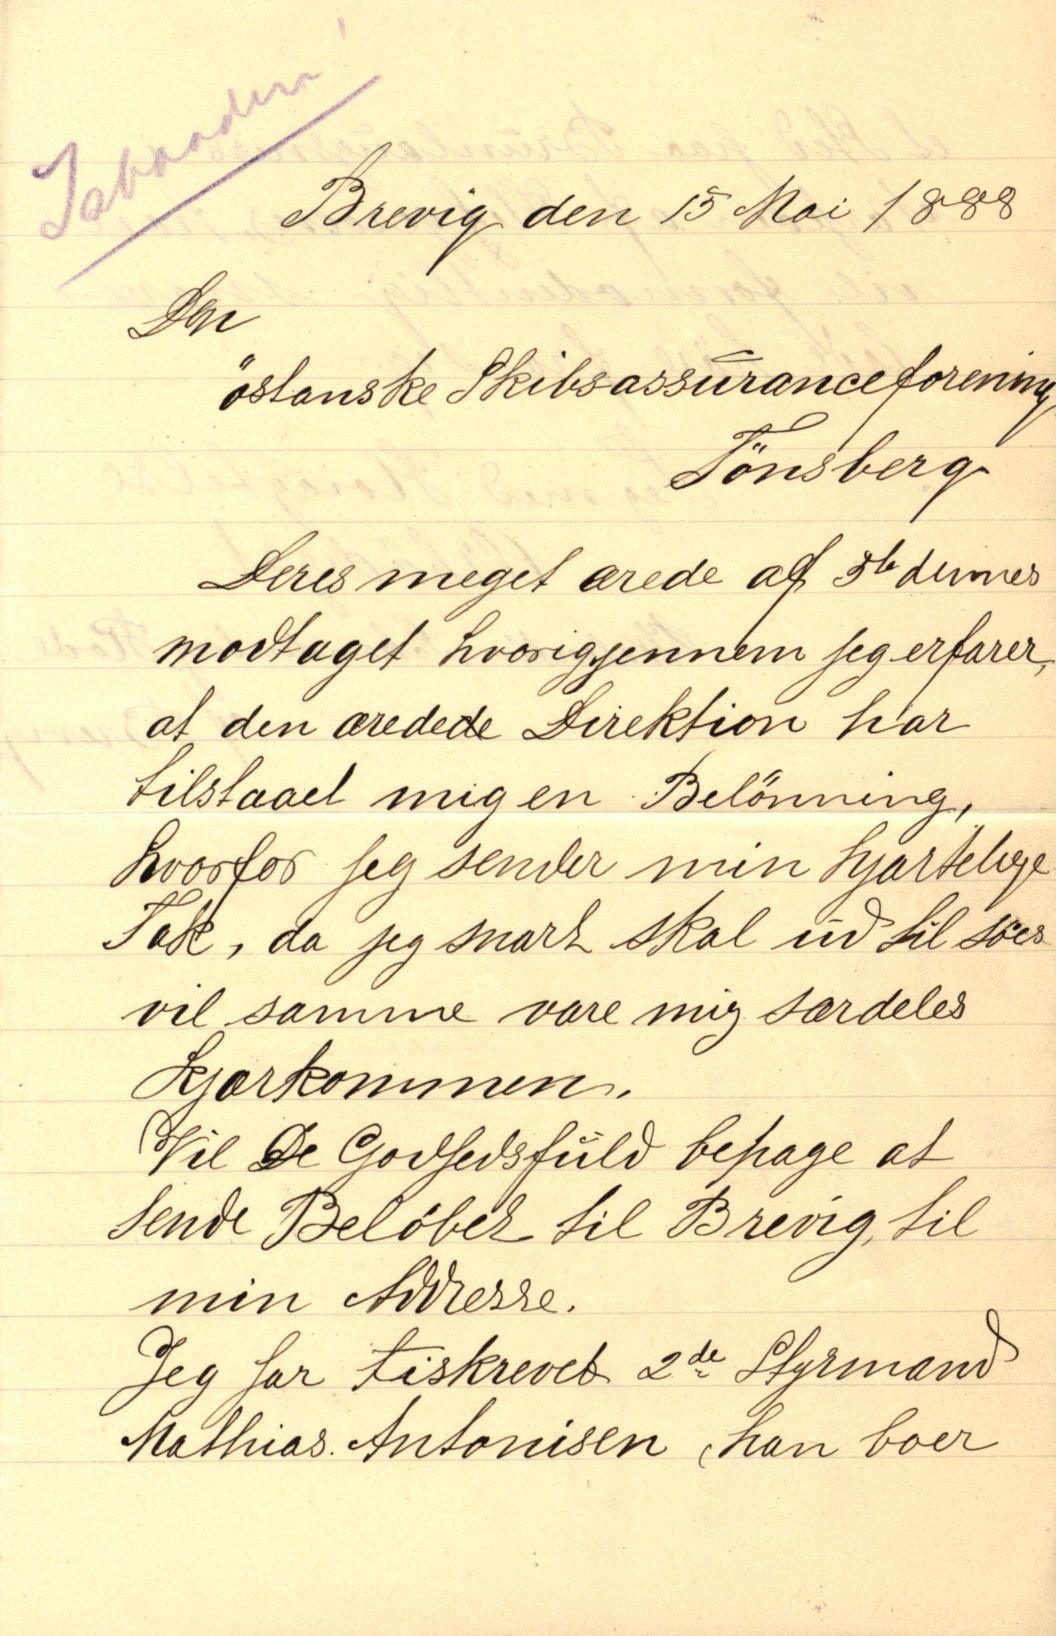 Isbaaden!
Brevig den 15 Mai 1888
Den
östanske Skibsassuranceforening
Tönsberg
Deres meget ærede af 5te dennes
modtaget hvorigjennem jeg erfarer,
at den æredede Direktion har
tilstaaet mig en Belönning,
hvorfor jeg sender min hjærtelige
Tak, da jeg snart skal ud til söes
vil samme være mig særdeles
kjærkommen.
Vil De Godhedsfuld behage at
sende Belöbet til Brevig, til
min Addresse.
Jeg har tiskrevet 2de Styrmand
Mathias. Antonisen, han boer